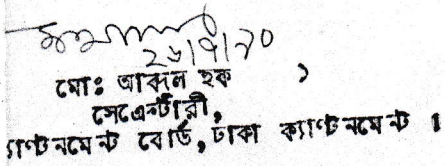 ২৬/৭/৭০
মোঃ আব্দুল হক
সেক্রেন্টারী,
ক্যাণ্টনমেন্ট বোর্ড, ঢাকা ক্যাণ্টনমেন্ট ।